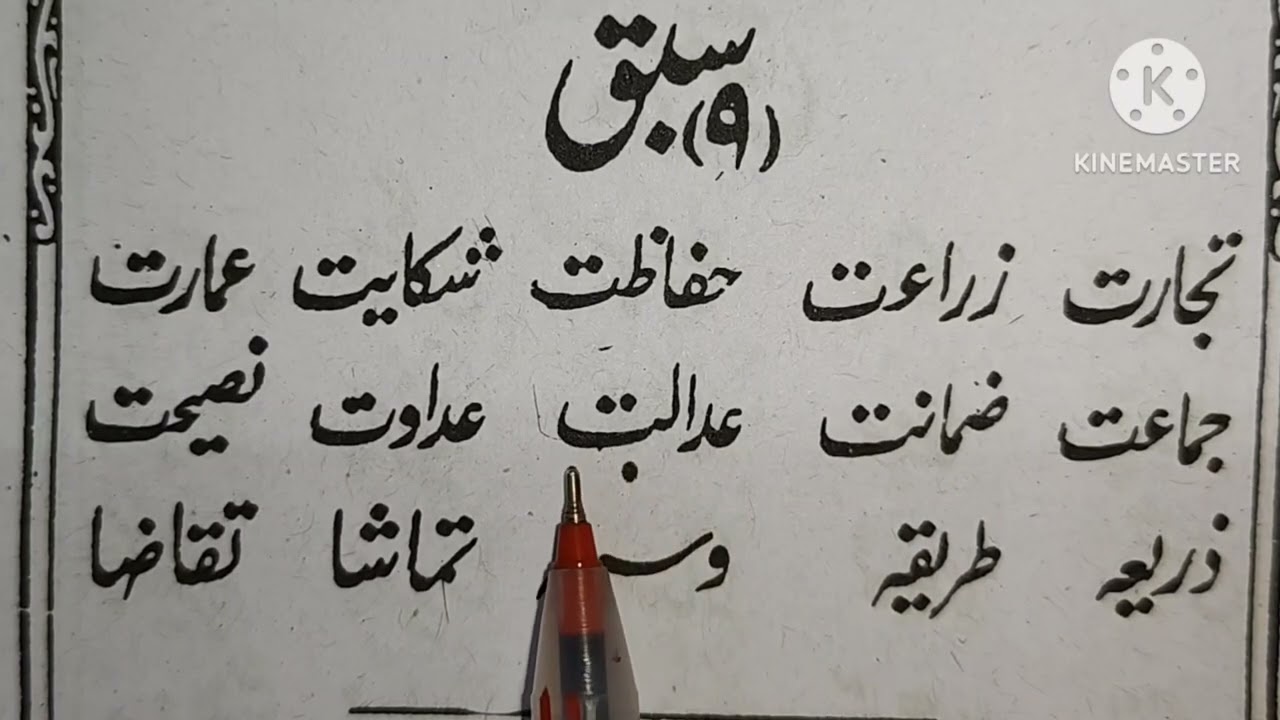 سبق (۹)
KINEMASTER
تجارت زراعت حفاظت شکایت عمارت
جماعت ضمانت عدالت عداوت نصیحت
ذریعہ طریقہ تماشا تقاضا